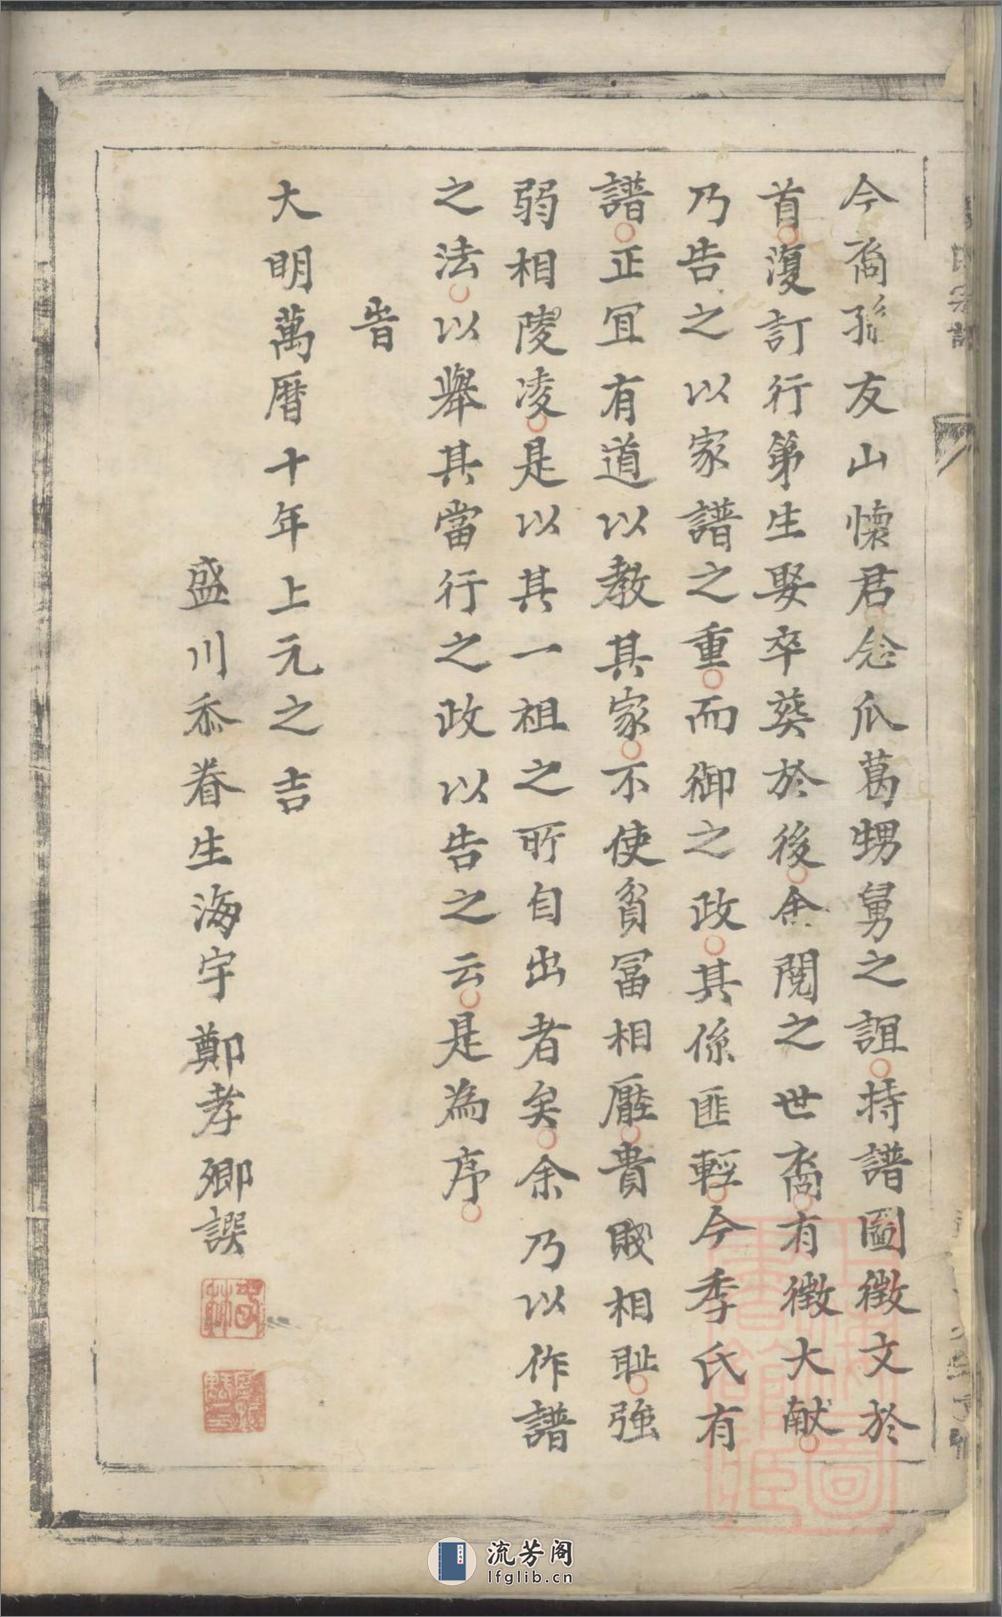 今裔孫友山懷君念瓜葛甥舅之誼持譜圖徵文於
首復訂行第生娶卒葬於後余閱之世裔有徵大献
乃告之以家譜之重而御之政其係匪輕今季氏有
譜正冝有道以教其家不使貧冨相壓貴賤相耻強
弱相陵凌是以其一祖之所自出者矣余乃以作譜
之法以舉其當行之政以告之云是為序
旹
大明萬暦十年上元之吉
盛川忝眷生海宇鄭孝卿譔
流芳阁
lfglib.cn